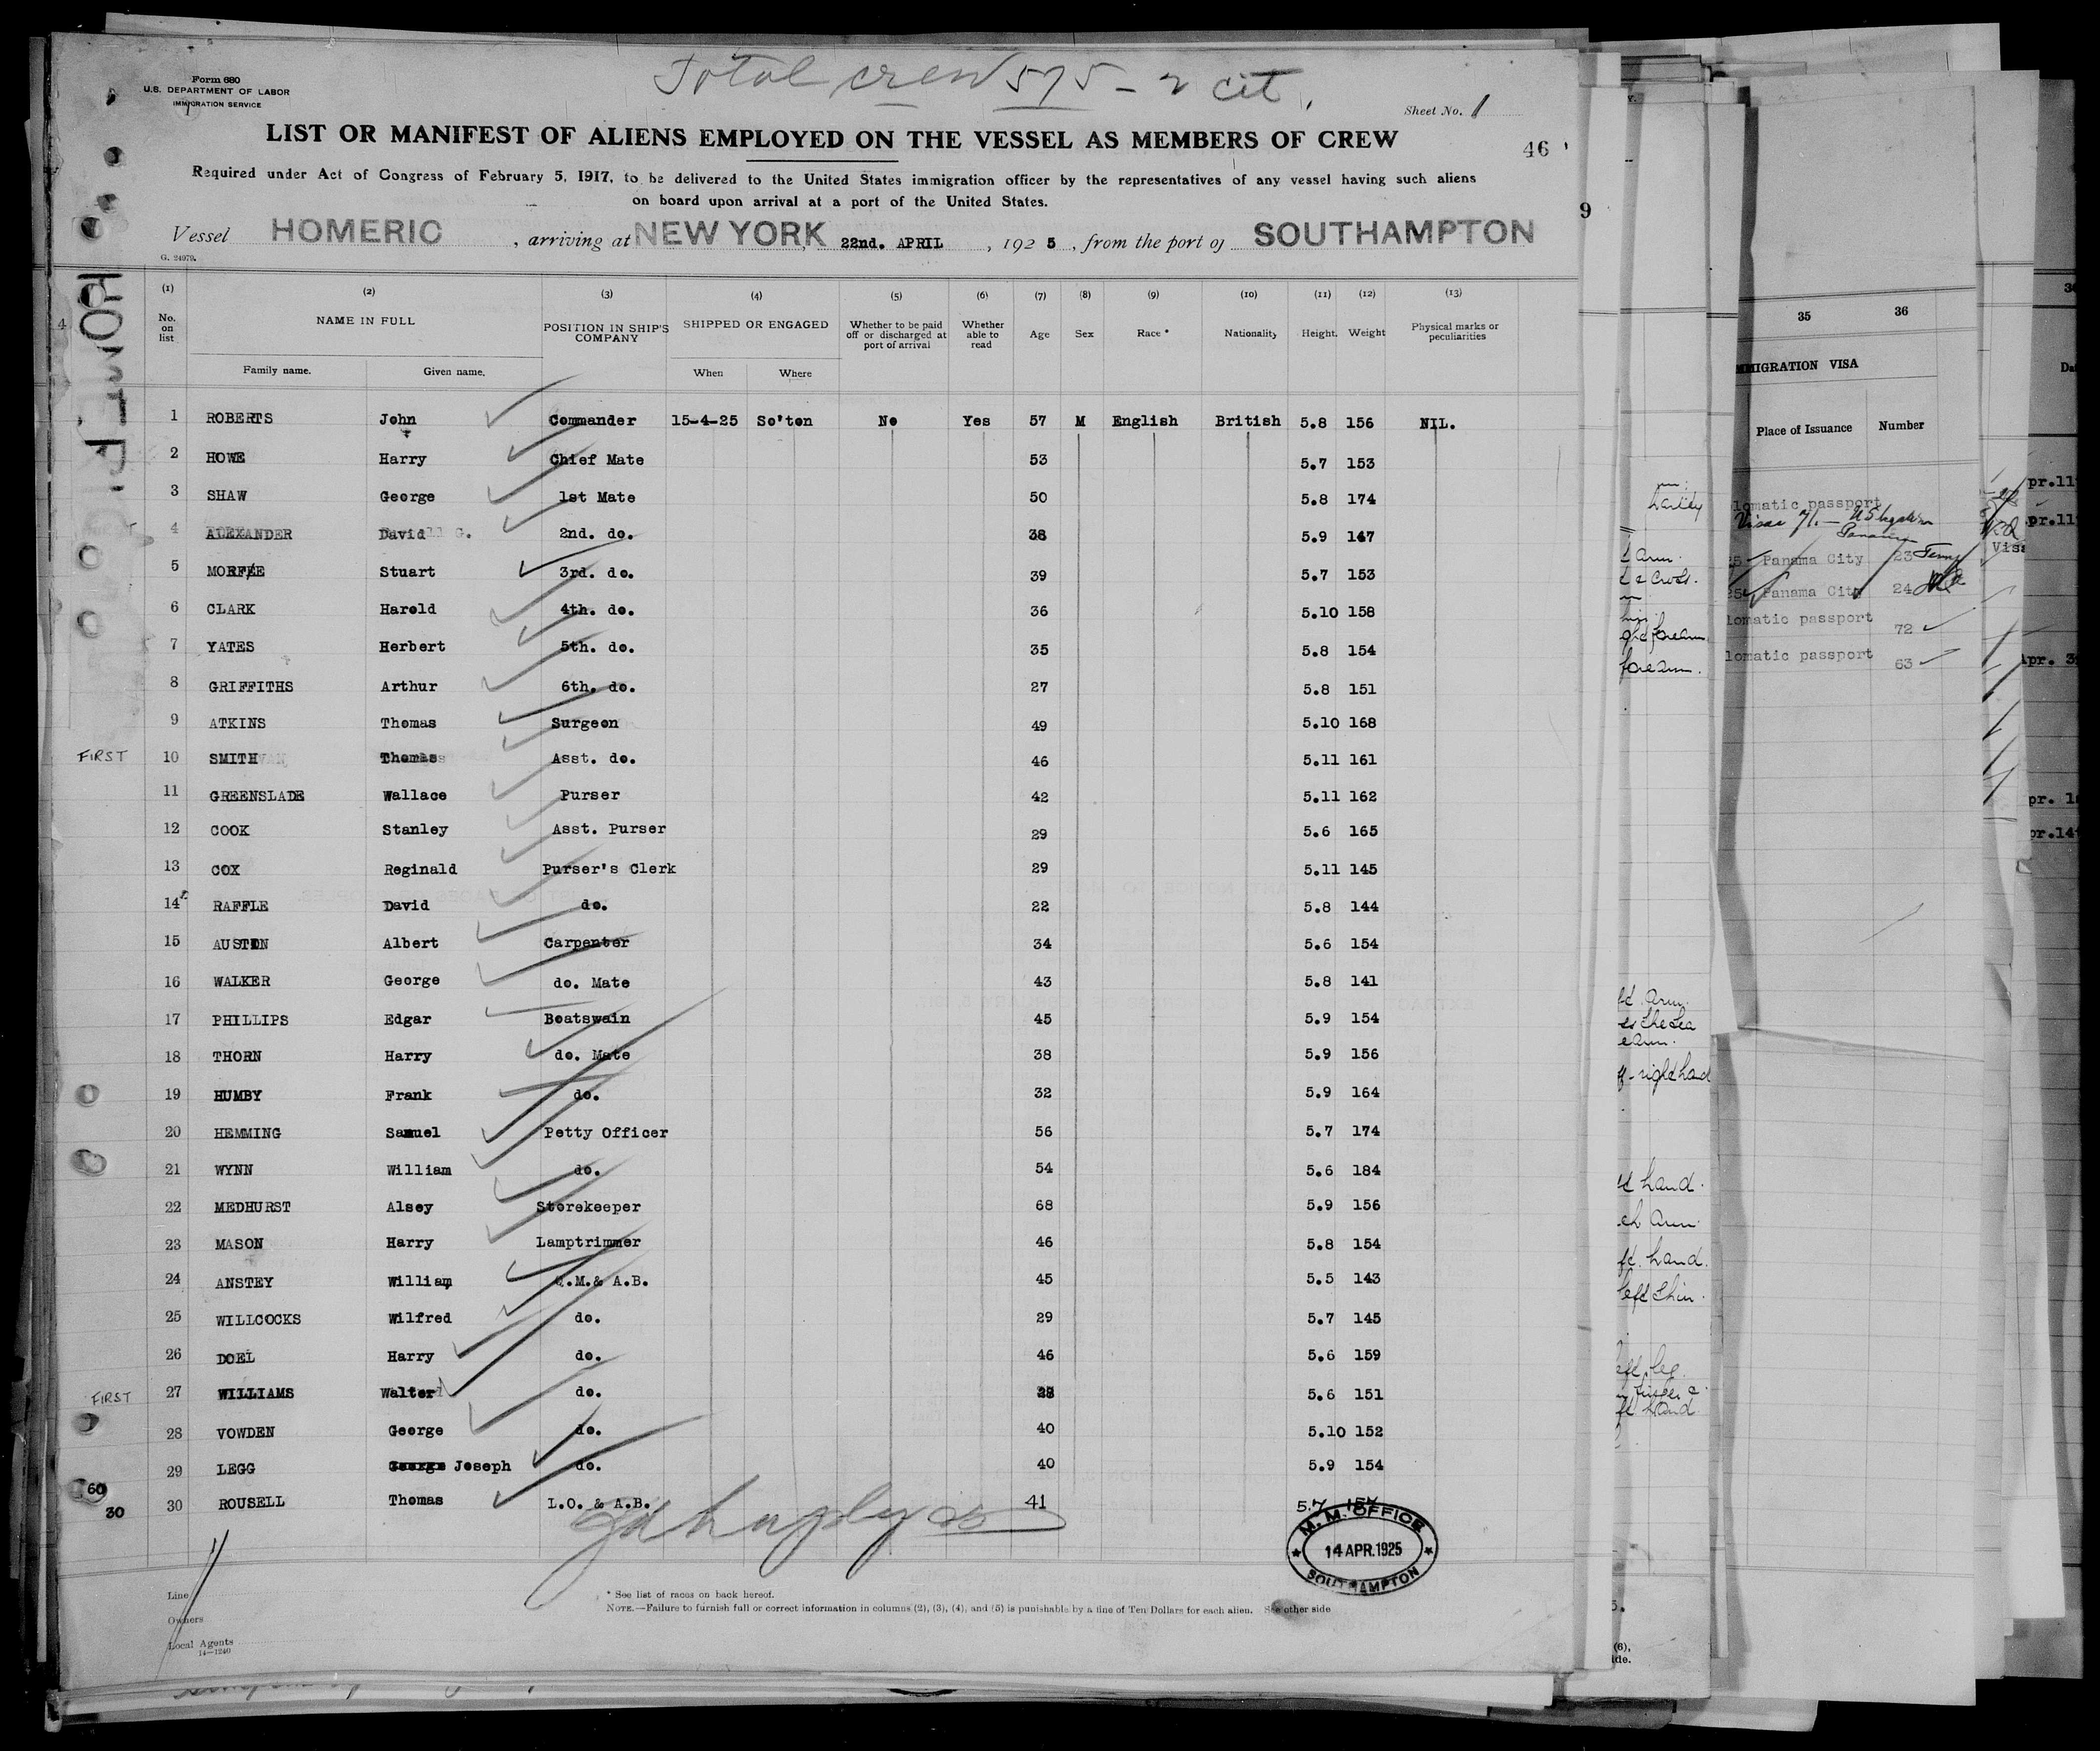 Total crew 575 - 2 cit.
Form 680
U.S. DEPARTMENT OF LABOR
IMMIGRATION SERVICE
Sheet No. 1
LIST OR MANIFEST OF ALIENS EMPLOYED ON THE VESSEL AS MEMBERS OF CREW
46
Required under Act of Congress of February 5, 1917, to be delivered to the United States immigration officer by the representatives of any vessel having such aliens
on board upon arrival at a port of the United States.
9
Vessel HOMERIC, arriving at NEW YORK, 22nd. APRIL, 1925, from the port of SOUTHAMPTON
G. 24979.
HOMERIC
4
(1) (2) (3) (4) (5) (6) (7) (8) (9) (10) (11) (12) (13)
No. on list NAME IN FULL POSITION IN SHIP'S COMPANY SHIPPED OR ENGAGED Whether to be paid off or discharged at port of arrival Whether able to read Age Sex Race * Nationality Height. Weight Physical marks or peculiarities
Family name. Given name. When Where
1 ROBERTS John Commander 15-4-25 So'ton No Yes 57 M English British 5.8 156 NIL.
2 HOWE Harry Chief Mate 53 5.7 153
3 SHAW George 1st Mate 50 5.8 174
4 ALEXANDER David G. 2nd. do. 38 5.9 147
5 Stuart 3rd. do. 39 5.7 153
6 CLARK Harold 4th. do. 36 5.10 158
7 YATES Herbert 5th. do. 35 5.8 154
8 GRIFFITHS Arthur 6th. do. 27 5.8 151
9 ATKINS Thomas Surgeon 49 5.10 168
FIRST 10 SMITH Thomas Asst. do. 46 5.11 161
11 GREENSLADE Wallace Purser 42 5.11 162
12 COOK Stanley Asst. Purser 29 5.6 165
13 COX Reginald Purser's Clerk 29 5.11 145
14 RAFFLE David do. 22 5.8 144
15 AUSTIN Albert Carpenter 34 5.6 154
16 WALKER George do. Mate 43 5.8 141
17 PHILLIPS Edgar Boatswain 45 5.9 154
18 THORN Harry do. Mate 38 5.9 156
19 HUMBY Frank do. 32 5.9 164
20 HEMMING Samuel Petty Officer 56 5.7 174
21 WYNN William do. 54 5.6 184
22 MEDHURST Alsey Storekeeper 68 5.9 156
23 MASON Harry Lamptrimmer 46 5.8 154
24 ANSTEY William Q.M.& A.B. 45 5.5 143
25 WILLCOCKS Wilfred do. 29 5.7 145
26 DOEL Harry do. 46 5.6 159
FIRST 27 WILLIAMS Walter do. 5.6 151
28 VOWDEN George do. 40 5.10 152
29 LEGG George Joseph do. 40 5.9 154
30 ROUSELL Thomas L.O. & A.B. 41 5.7 154
60
30
M. M. OFFICE
14 APR. 1925
SOUTHAMPTON
Line
Owners
Local Agents
14—1240
* See list of races on back hereof.
NOTE.—Failure to furnish full or correct information in columns (2), (3), (4), and (5) is punishable by a fine of Ten Dollars for each alien. See other side
arm.
forearm
forearm.
arm.
right hand
hand.
arm.
hand.
left shin.
left leg.
hand
(6),
ide.
35 36
IMMIGRATION VISA
Place of Issuance Number
lomatic passport
Panama
25 Panama City 23
25 Panama City 24
lomatic passport 72
lomatic passport 63
pr.11
pr.11
Visa
Apr. 3
pr. 1
pr.14